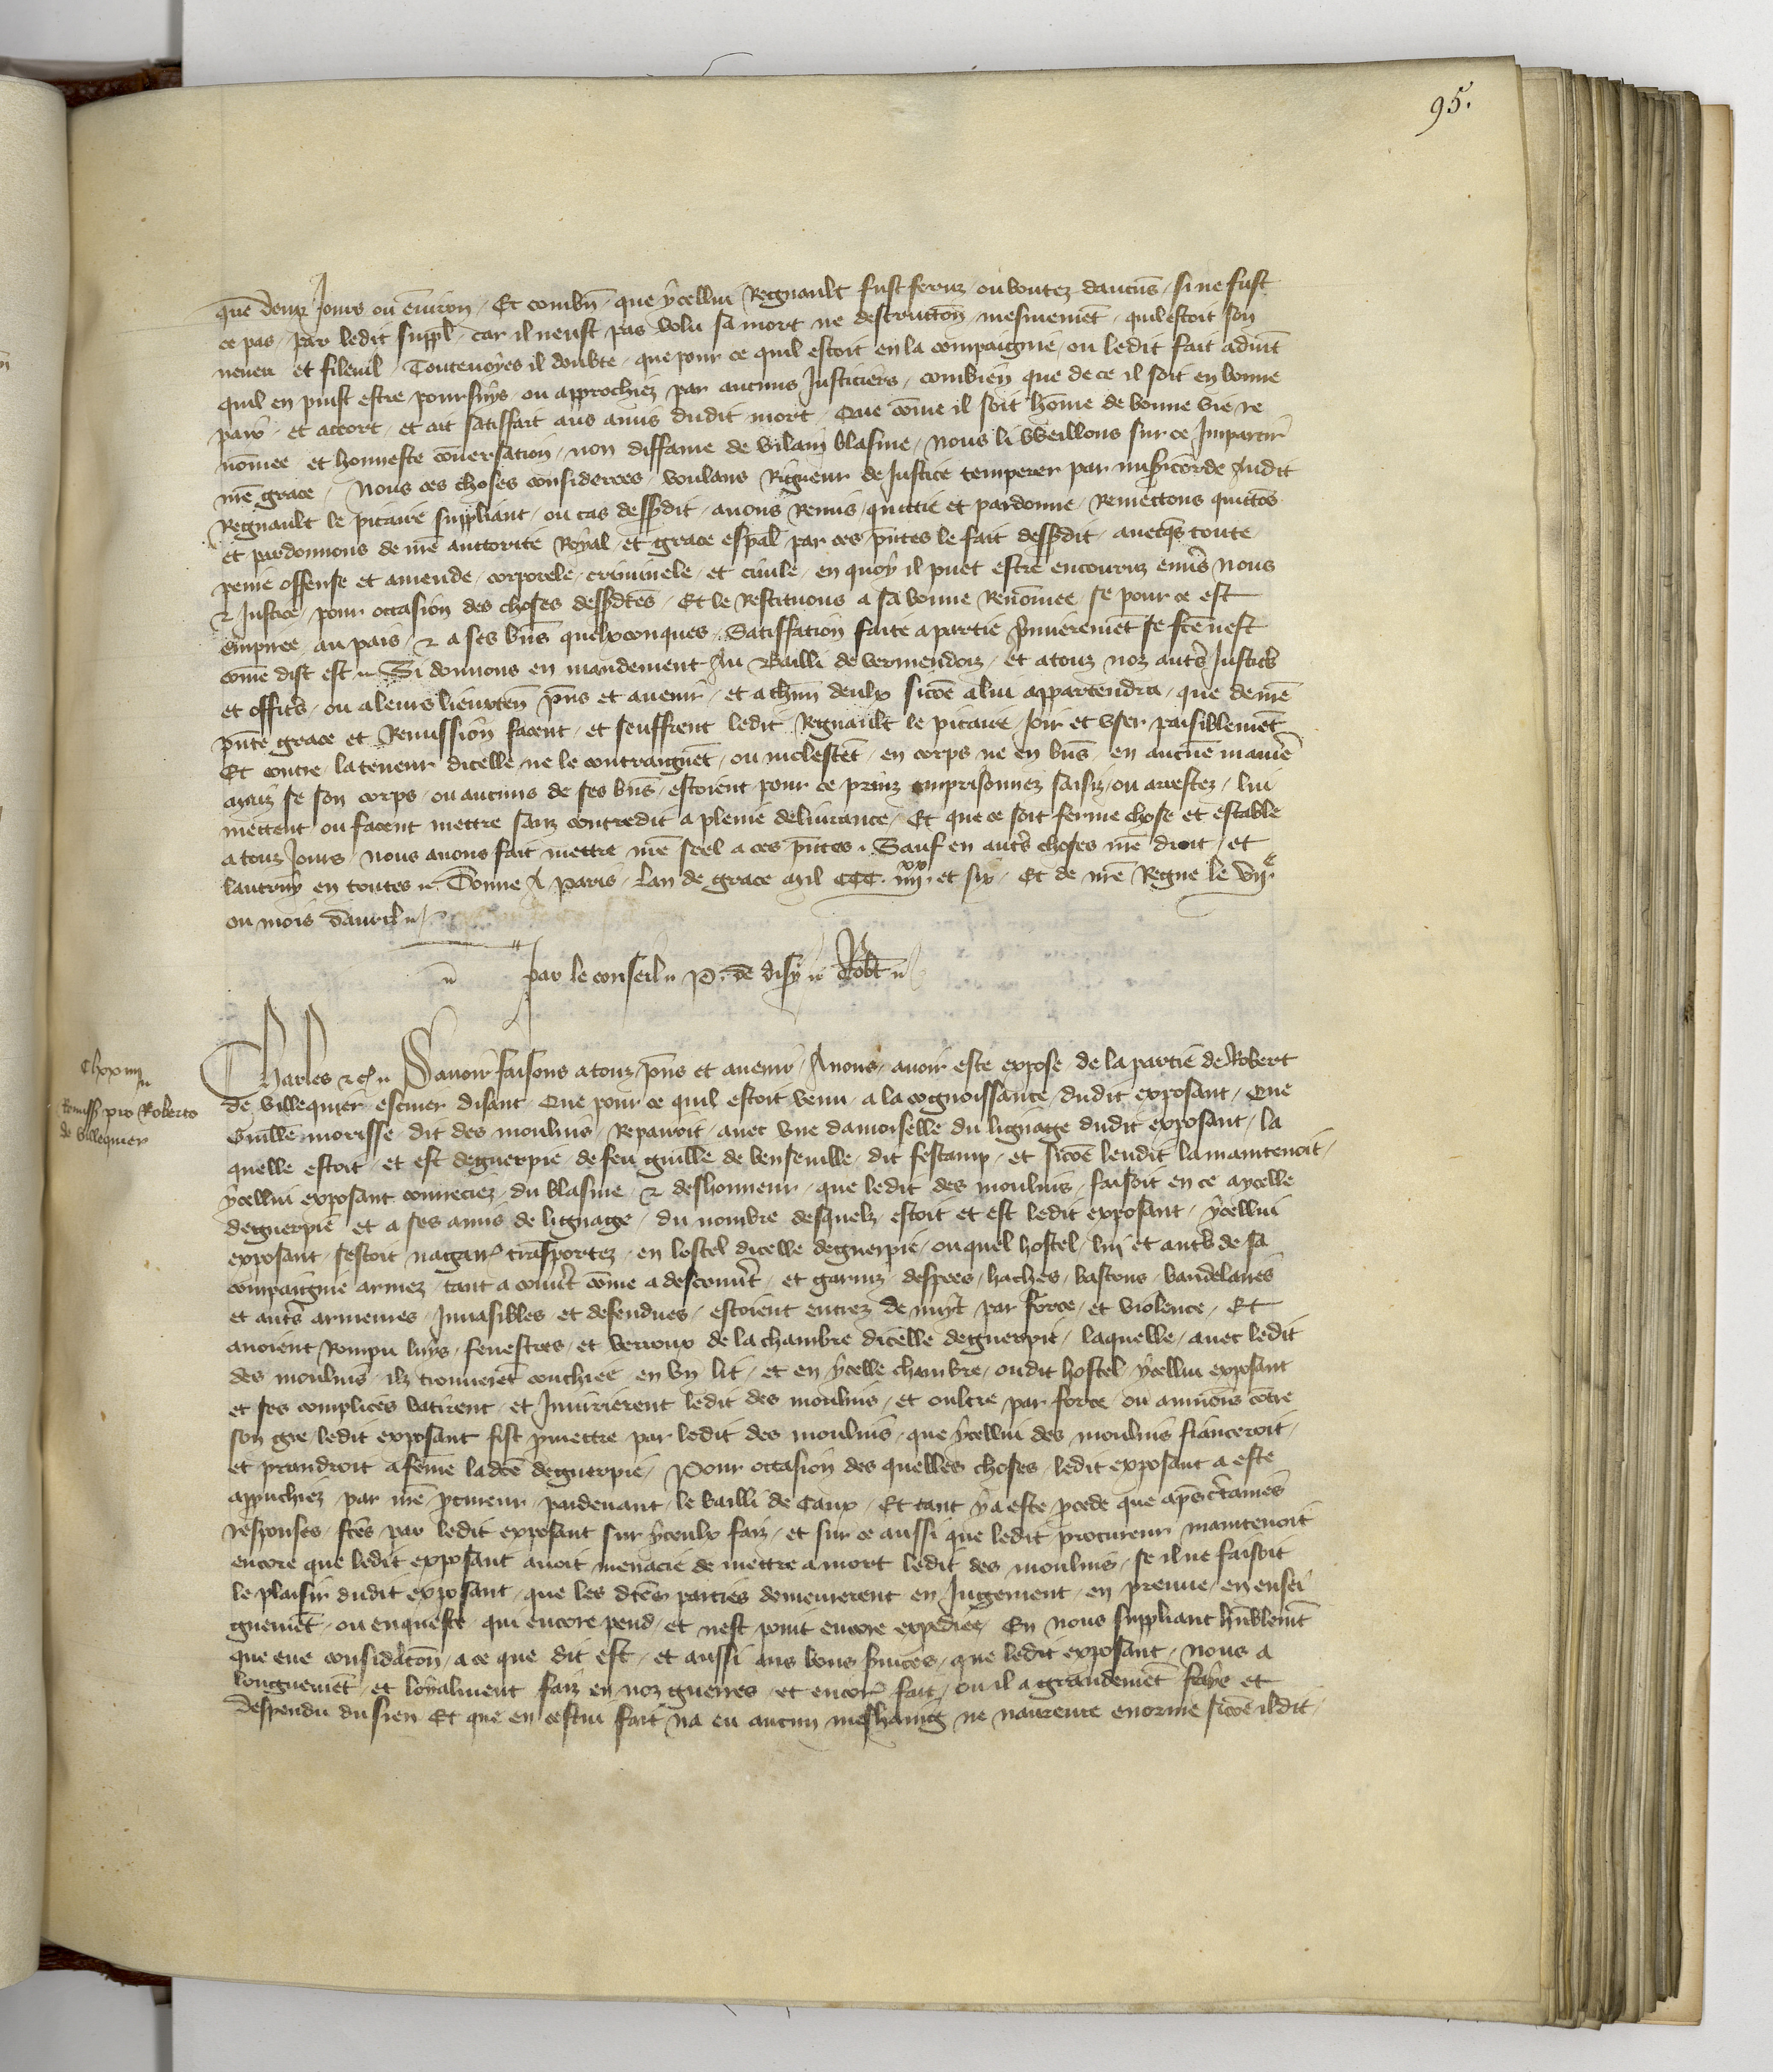 95.
que deux Jours ou environ / Et combn̄ que ycellui Regnault fust feruz ou boutez daucūs / si ne fust
ce pas par ledit suppl̄ / car il neust pas volu sa mort ne destructōn / mesmemēt quil estoit son
neveu et filleul / Toutevoyes il doubte que pour ce quil estoit en la compaignie ou ledit fait advīt
quil en puist estre poursuys ou approchiez par aucuns Justiciers / combien que de ce il soit en bonne
paix et accort et ait satisfait aus amis dudit mort / Que cōme il soit hōme de bonne vie re
nōmee et honneste cōversation / non diffame de vilain blasme / nous li vveillons sur ce Impartir
nr̄e grace / Nous ces choses considerees / voulans Rigueur de Justice temperer par misicorde Audit
Regnault le picart suppliant / ou cas dessusdit / avons Remis quittie et pardonne / Remettons quittōs
et pardonnons de nr̄e auctorite Royal et grace esp̄al par ces p̄ntes le fait dessusdit / avecqs toute
peine offense et amende corporele / criminele / et civile / en quoy il puet estre encouruz envs nous
& Justice / pour occasion des choses dessusdtēs / Et le Restituons a sa bonne Renōmee se pour ce est
empiree au pais / & a ses biēs quelxconques / Satisfation faite a partie p̄mieremēt se fcē nest
cōme dist est // Si donnons en mandement Au Bailli de vermendoiz / et a touz noz auts Justicis
et officis / ou a leurs lieuxten̄ p̄ns et avenir / et a chūn deulx sicōe a lui appartendra / que de nr̄e
p̄nte grace et Remission facent et seuffrent ledit Regnault le picart Joir et user paisiblemēt
Et contre la teneur dicelle ne le contraignēt / ou molestēt en corps ne en biēs en aucune manie
Maiz se son corps ou aucuns de ses biēs estoient pour ce prinz emprisonnez saisiz ou arrestez / lui
mettent ou facent mettre sanz contredit a pleine delivrance / Et que ce soit ferme chose et estable
a touz Jours / nous avons fait mettre nr̄e seel a ces p̄ntes . Sauf en auts choses nr̄e droit / et
lautruy en toutes // Donne A Paris lan de grace Mil CCC. iiii.xx et six / Et de nr̄e Regne le vii.e
ou mois davril //
Par le conseil // P. de disy // Robt̄ //
Charles &c̄ // Savoir faisons a touz p̄ns et avenir / A nous avoir este expose de la partie de Robert
de villequier escuier disant / Que pour ce quil estoit venu a la cognoissance dudit exposant / Que
Guille morisse dit des moulins Repairoit avec une damoiselle du lignage dudit exposant / la
quelle estoit et est deguerpie de feu guille de benseville dit festamp / et sicōe lendit la maintenoit /
ycellui exposant courreciez du blasme & deshonneur que ledit des moulins faisoit en ce a ycelle
deguerpie et a ses amis de lignage / du nombre desquelz estoit et est ledit exposant / ycellui
exposant sestoit trāsportez en lostel dicelle deguerpie / ouquel hostel lui et auts de sa
compaignie armez / tant a couvt cōme a descouvt et garniz despees haches / bastons
et auts armeures Invasibles et defendues / estoient entrez de nuyt par force et violence / Et
avoient Rompu luys / fenestres / et verroux de la chambre dicelle deguerpie / laquelle avec ledit
des moulins ilz trouverēt couchiee en un lit / et en ycelle chambre oudit hostel ycellui exposant
et ses complices batirent et Iniurierent ledit des moulins / et oultre par force ou aumoīs cōtre
son gre ledit exposant fist p̄mettre par ledit des moulins que ycellui des moulins fianceroit
et prandroit a feme ladcē deguerpie / Pour occasion des quelles choses ledit exposant a este
approchiez par nr̄e p̄cureur pardevant le bailli de Caux / Et tant y a este p̄cede que ap̄s ctaines
responses fcēs par ledit exposant sur yceulx faiz / et sur ce aussi que ledit procureur maintenoit
encore que ledit exposant avoit menacie de mettre a mort ledit des moulins se il ne faisoit
le plaisir dudit exposant / que les dtēs parties demeurerent en Jugement en preuve en ensei
gnemēt ou enqueste qui encore pend et nest point encore expediee / En nous suppliant hūblemēt
que eue considāton a ce que dit est / et aussi aus bons sivices que ledit exposant nous a
longuemēt et loyalment faiz en noz guerres et encores fait / ou il a grandemēt fraye et
despendu du sien Et que en cestui fait na eu aucun meshaing ne navreure enorme sicōe il dit /
Cixxiiii
Remiss̄ pro Roberto
de Villequier